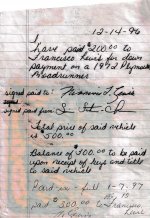 12-14-96
I have paid $200.00 to
Francisco for down
payment on a 1972 Plymouth
Roadrunner
signed paid to:
signed
signed paid from:
Total price of said vehicle
is 500.00
Balance of $300.00 to be paid
upon receipt of keys and title
to said vehicle
Paid in full 1-7-97
paid $300.00 to Francisco